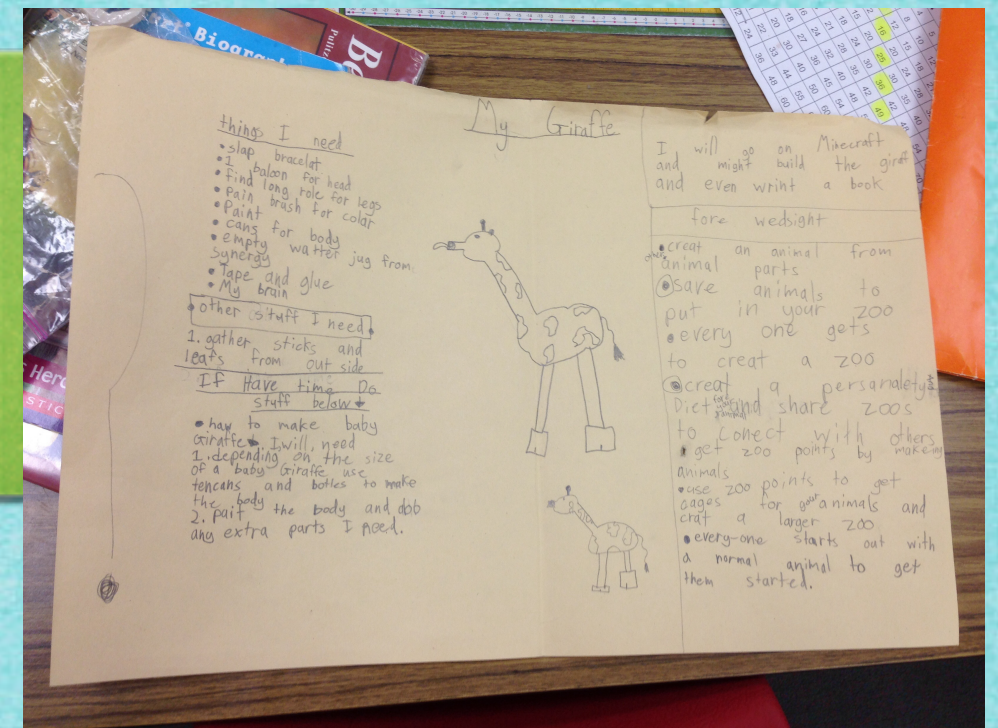 My Giraffe
things I need
• slap bracelat
• 1 baloon for head
• find long role for legs
• pain brush for color
• Paint
• cans for body
• empty watter jug from
synergy
• Tape and glue
• My brain
other stuff I need
1. gather sticks and
leafs from out side
If Have time Do
stuff below
• haw to make baby
Giraffe I will need
1. depending on the size
of a baby Giraffe use
tencans and botles to make
the body
2. pait the body and dob
any extra parts I need.
I will go on Minecraft
and might build the giraff
and even wrint a book
fore wedsight
• creat an animal from
other animal parts
• save animals to
put in your zoo
• every one gets
to creat a zoo
• creat a persanalety
Diet and share zoos
to conect with others
• get zoo points by makeing
animals
• use zoo points to get
cages for your animals and
crat a larger zoo
• every-one starts out with
a normal animal to get
them started.
Biograph
Be
Pulitz
Herc
STIC